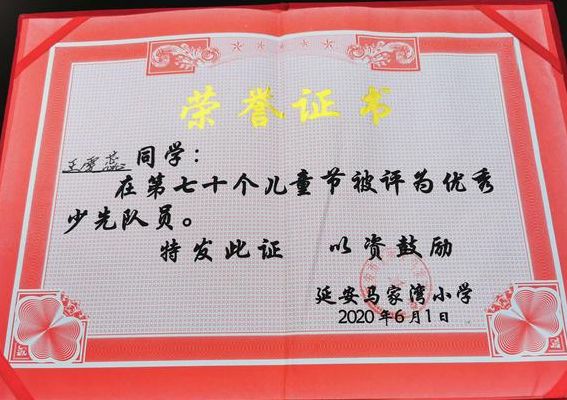 荣誉证书
王雯蕊同学：
在第七十个儿童节被评为优秀
少先队员。
特发此证 以资鼓励
延安马家湾小学
2020年6月1日